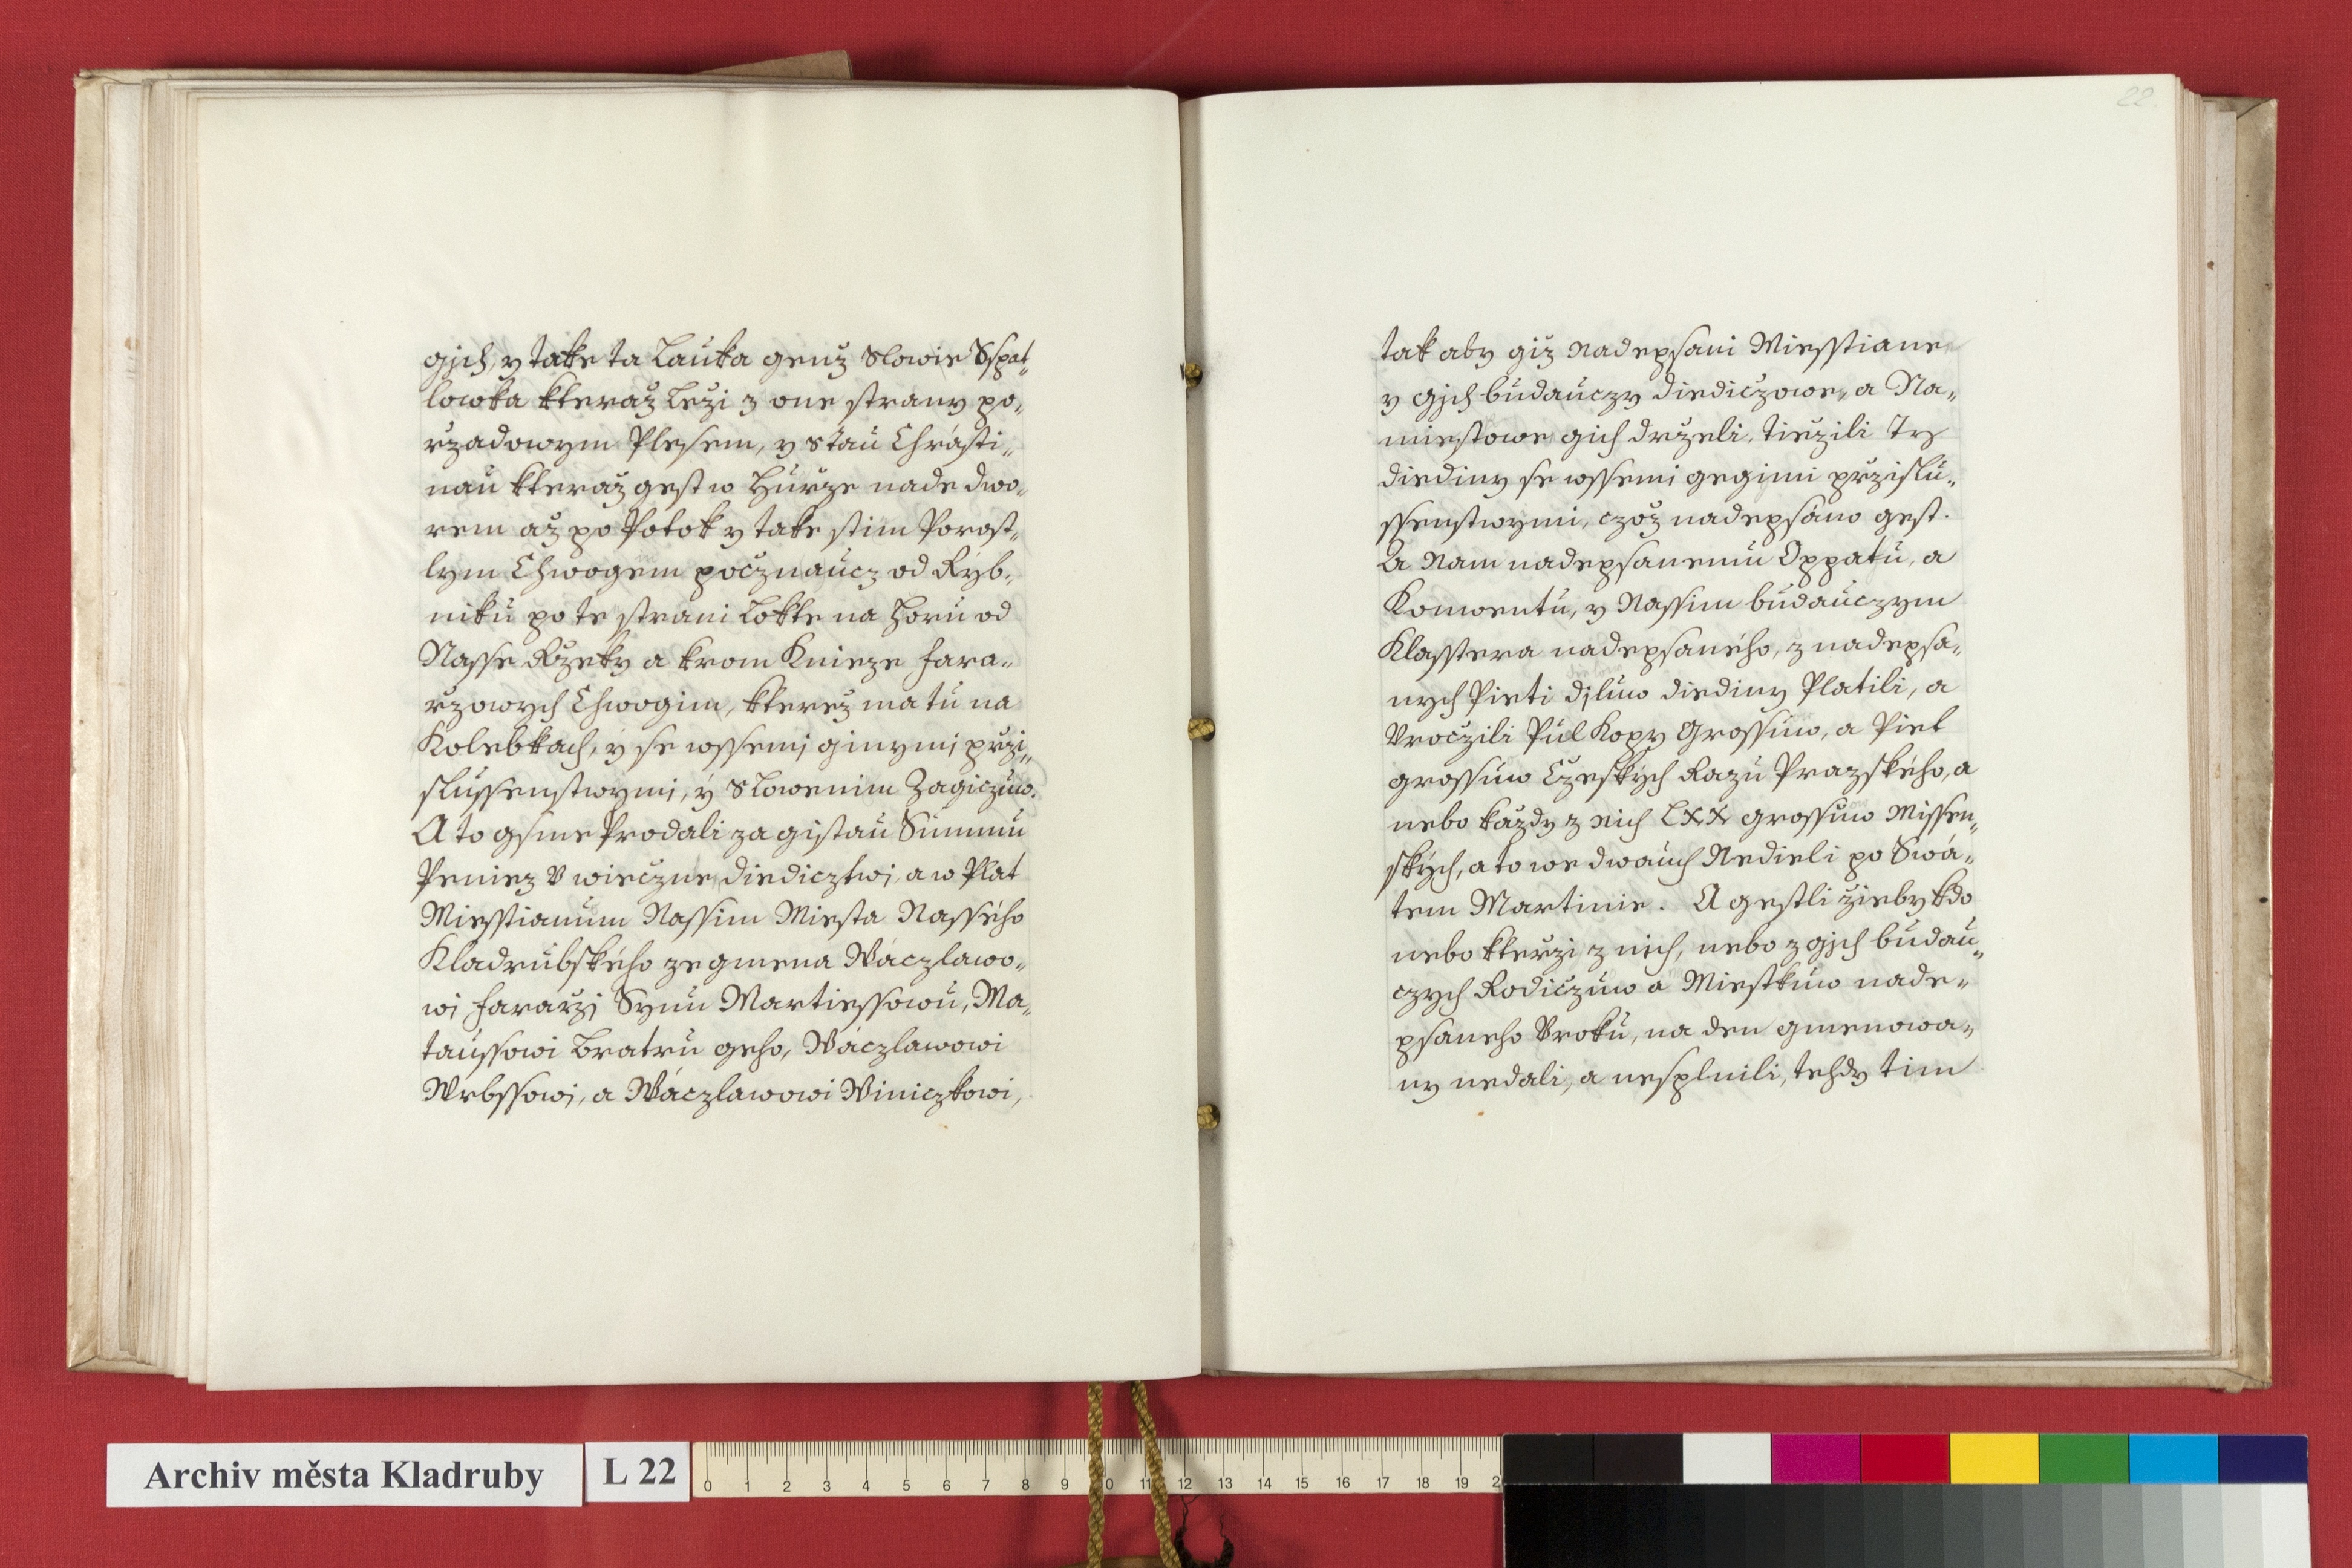 gjch, y take ta Lauka genž Slowie Sspat„
lowka kteraž Leži z one strany po„
ržadowym Plesem, y stau Chrásti„
nau kteraž gest w Hůrze nade dwo„
rem až po Potok y take s tim Porost„
lym Chwogem počznaucz od Ryb„
niku po te strani Lokte na Horu od
Nasse Ržeky a krom Knieze Fara„
ržowych Chwogim, kterež ma tu na
Kolebkach, ý se wssemj ginymi przi„
slussenstwymi, ý Slowenim Zagiczuw.
A to gsme Prodali za gistau Summu
Peniez V wieczne diedicztwj, a w Plat
Miesstianum Nassim Miesta Nassého
Kladrubského ze gmena Wáczlawo„
wi Fararzj Synu Martiessowu, Ma„
taussowi Bratru geho, Wáczlawowi
Wrbssowj, a Wáczlawowi Winiczkowi,
22.
tak aby giž nadepsani Miesstiane
y gjch budauczy diediczowe, a Na„
miestowe gich drželi, tiežili Ty
diediny se wssemi gegimi przislu„
ssenstwymi, czož nadepsáno gest.
A Nam nadepsanemu Oppatu, a
Konwentu, y Nassim budauczym
Klasstera nadepsaného, z nadepsa„
nych Pieti djluw diediny Platili, a
Vroczili Půl Kopy Grossuw, a Piet
grossuw Czeských Razu Pražského, a
nebo každy z nich LXX grossuw Missen„
ských, a to we dwauch Nedieli po Swá„
tem Martinie. A gestli žieby kdo
nebo kterzi z nich, nebo z gjch budau„
czych Rodiczuw a Miestkuw nade„
psaneho Vroku, na den gmenowa„
ny nedali, a nesplnili, tehdy tim
Archiv města Kladruby
L 22
0 1 2 3 4 5 6 7 8 9 10 11 12 13 14 15 16 17 18 19 2